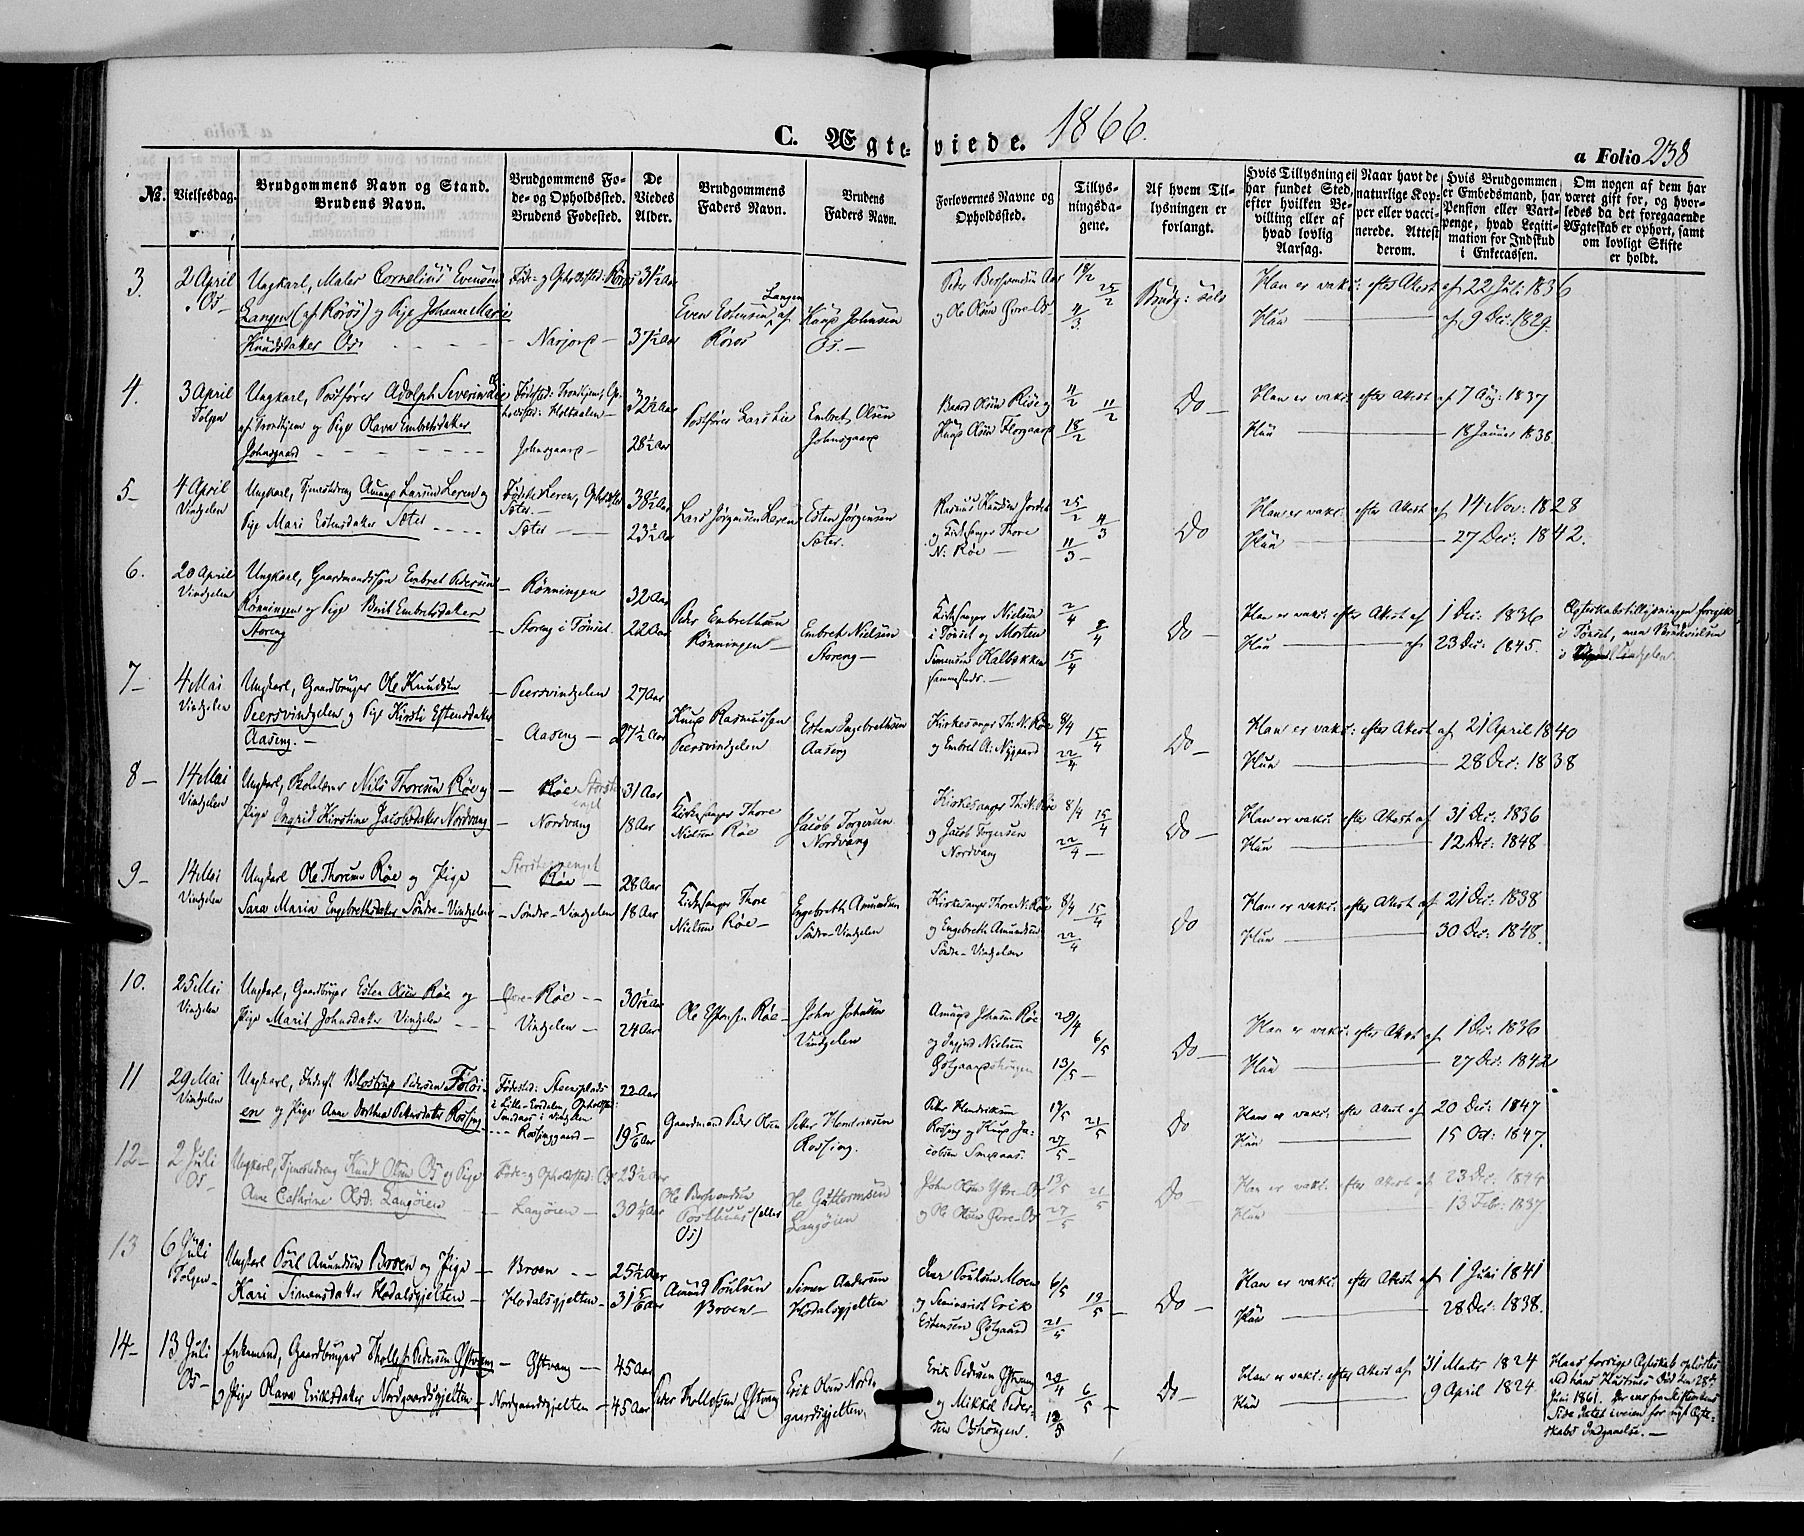 C. Ægteviede. 1866.
a Folio 238
No.
Vielsesdag.
Brudgommens Navn og Stand.
Brudens Navn.
Brudgommens Fø-
de- og Opholdssted.
Brudens Fødested.
De
Viedes
Alder.
Brudgommens
Faders Navn.
Brudens
Faders Navn.
Forlovernes Navne og
Opholdssted.
Tillys-
ningsda-
gene.
Af hvem Til-
lysningen er
forlangt.
Hvis Tillysning ei
har fundet Sted,
efter hvilken Be-
villing eller af
hvad lovlig
Aarsag.
Naar havt de
naturlige Kop-
per eller vacci-
nerede. Attest
derom.
Hvis Brudgommen
er Embedsmand, har
Pension eller Vart-
penge, hvad Legiti-
mation for Indskud
i Enkecassen.
Om nogen af dem har
været gift for, og hvor-
ledes da det foregaaende
Ægteskab er ophørt, samt
om lovligt Skifte
er holdt.
3.
2 April
Os-
Ungkarl, Maler Cornelius Evensøn
Langen (af Røros) og Pige Johanne Marie
Knudsdatter Os
Føde- og Opholdssted: Røros
Narjord
31½ Aar
37½ Aar
Even Estensen Langen af
Røros
Knud Johnsen
Os.-
Peder Bersvendsen Aas
og Ole Olsen Øvre-Os-
18/2 25/2 4/3
Brudg: selv
Han er vakc: efter Attest af 22 Juli 1836
Hun — af 9 Dec: 1829.
4.
3 April
Tolgen
Ungkarl, Postfører Adolph Severin Lie
af Trondhjem og Pige Olava Embretsdatter
Johnsgaard
Fødested: Trondhjem, Op-
holdssted: Holtaalen-
Johnsgaard-
32½ Aar
28½ Aar
Postfører Lars Lie
Embret Olsen
Johnsgaard
Baard Olsen Rise og
Knud Olsen Florgaard
4/2 11/2 18/2
Do-
Han er vakc: efter Attest af 7 Aug: 1837
Hun — 18 Januar 1838.
5-
4 April
Vingelen
Ungkarl, Tjenestedreng Amund Larsen Leren og
Pige Mari Estensdatter Sæter
Fødested Leren, Opholdssted
Sæter.-
Sæter
38½ Aar
23½ Aar
Lars Jørgensen Leren
Esten Jørgensen
Sæter.
Rasmus Knudsen Jordet
og Kirkesanger Thore
N: Røe-
25/2 4/3 11/3
Do
Han er vakc: efter Attest af 14 Nov: 1828
Hun — 27 Dec: 1842.
6.
20 April
Vingelen
Ungkarl, Gaardmandssøn Embret Pedersen
Rønningen og Pige Berit Embretsdatter
Storeng
Rønningen
Storeng i Tønset
32 Aar
22 Aar
Peder Embretsen
Rønningen-
Embret Nielsen
Storeng-
Kirkesanger Nielsen
i Tønset og Morten
Simensen Kalbækken
sammesteds.-
2/4 8/4 15/4
Do-
Han er vakc: efter Attest af 1 Dec: 1836
Hun — af 23 Dec: 1845.
Ægteskabstillysningen foregik
i Tønset, men Brudevielsen
i Vingelen.
7-
4 Mai
Vingelen
Ungkarl, Gaardbruger Ole Knudsen
Peersvingelen og Pige Kirsti Estensdatter
Aaseng.-
Peersvingelen
Aaseng-
27 Aar
27½ Aar
Knud Rasmussen
Peersvingelen
Esten Ingebrethsen
Aaseng
Kirkesanger Th: N. Røe
og Embret A: Nygaard
8/4 15/4 22/4
Do-
Han er vakc: efter Attest af 21 April 1840
Hun — 28 Dec: 1838
8-
14 Mai
Vingelen
Ungkarl, Skolelærer Nils Thoresen Røe og
Pige Ingrid Kirstine Jacobsdatter Nordvang
Røe
Nordvang
31 Aar
18 Aar
Kirkesanger Thore
Nielsen Røe
Jacob Torgersen
Nordvang
Kirkesanger Th: N. Røe
og Jacob Torgersen
Nordvang
8/4 15/4 22/4-
Do-
Han er vakc: efter Attest af 31 Dec: 1836
Hun — 12 Dec: 1848.
9-
14 Mai
Vingelen
Ungkarl Ole Thoresen Røe og Pige
Sara Maria Engebrethsdatter Søndre-Vingelen
Røe-
Søndre-Vingelen
28 Aar
18 Aar
Kirkesanger Thore
Nielsen Røe-
Engebreth Amundsen
Søndre-Vingelen
Kirkesanger Thore N. Røe
og Engebreth Amundsen
Søndre-Vingelen
8/4 15/4 22/4
Do
Han er vakc: efter Attest af 21 Dec: 1838
Hun — 30 Dec: 1848.
10.
25 Mai
Vingelen
Ungkarl, Gaardbruger Esten Olsen Røe og
Pige Marit Johnsdatter Vingelen
Øvre-Røe
Vingelen
30½ Aar
24 Aar
Ole Estensen Røe-
John Johnsen
Vingelen
Amund Johnsen Røe
og Ingjerd Nielsen
29/4 6/5 13/5-
Do-
Han er vakc: efter Attest af 1 Dec: 1836
Hun — 27 Dec: 1842
11
29 Mai
Vingelen
Ungkarl, Inderst Blostrup Pedersen Foldi-
en og Pige Anne Dorthea Petersdatter Rosjing
Fødested: Steensplads
i Lille-Elvedalen, Opholdssted:
Smedaas i Vingelen
22 Aar
19 5/6 Aar
Gaardmand Peder Olsen
Peter Hendriksen
Rosjing.
Peter Hendriksen
Rosjing og Knud Ja-
cobsen Smedaas.
19/5 21/5 27/5-
Do
Han er vakc: efter Attest af 20 Dec: 1847
Hun — 15 Oct: 1847.
12-
2 Juli
Os-
Ungkarl, Tjenestedreng Knud Olsen Os og Pige
Ane Cathrine Olsd. Langøien
Føde- og Opholdssted: Os
Langøien-
23½ Aar
30¼ Aar
Ole Bersvendsen
Posthuus (eller
Os)
Ole Guttormsen
Langøien
John Olsen Ytre-Os
og Ole Olsen Øvre-Os
13/5 21/5 27/5
Do-
Han er vakc: efter Attest af 23 Dec: 1844
Hun — 13 Feb: 1837.
13
6 Juli
Tolgen-
Ungkarl Poul Amundsen Broen og Pige
Kari Simensdatter Hodalsgjelten
Broen
Hodalsgjelten-
25½ Aar
31 5/6 Aar
Amund Poulsen
Broen-
Simen Andersen
Hodalsgjelten
Iver Poulsen Moen
og Seminarist Erik
Estensen Østgaard
6/5 19/5 21/5
Do-
Han er vakc: efter Attest af 1 Juni 1841
Hun — 28 Dec: 1838.
14-
13 Juli
Os-
Enkemand, Gaardbruger Thollef Pedersen Østvang
og Pige Olava Eriksdatter Nordgaardsgjelten
Østvang
Nordgaardsgjelten-
45 Aar
45 Aar
Peder Tollefsen Østvang
Erik Olsen Nord-
gaardsgjelten.
Erik Pedersen Østvang
og Mikkel Peder-
sen Oshøugen.
29/4 6/5 13/5
Do-
Han er vakc: efter Attest af 31 Marts 1824
Hun — 9 April 1824
Hans forrige Ægteskab opløstes
ved hans Hustrues Død den 28de
Juni 1861. Der var fra Skifterettens
Side Intet iveien for nyt Ægte-
skabs Indgaaelse.-